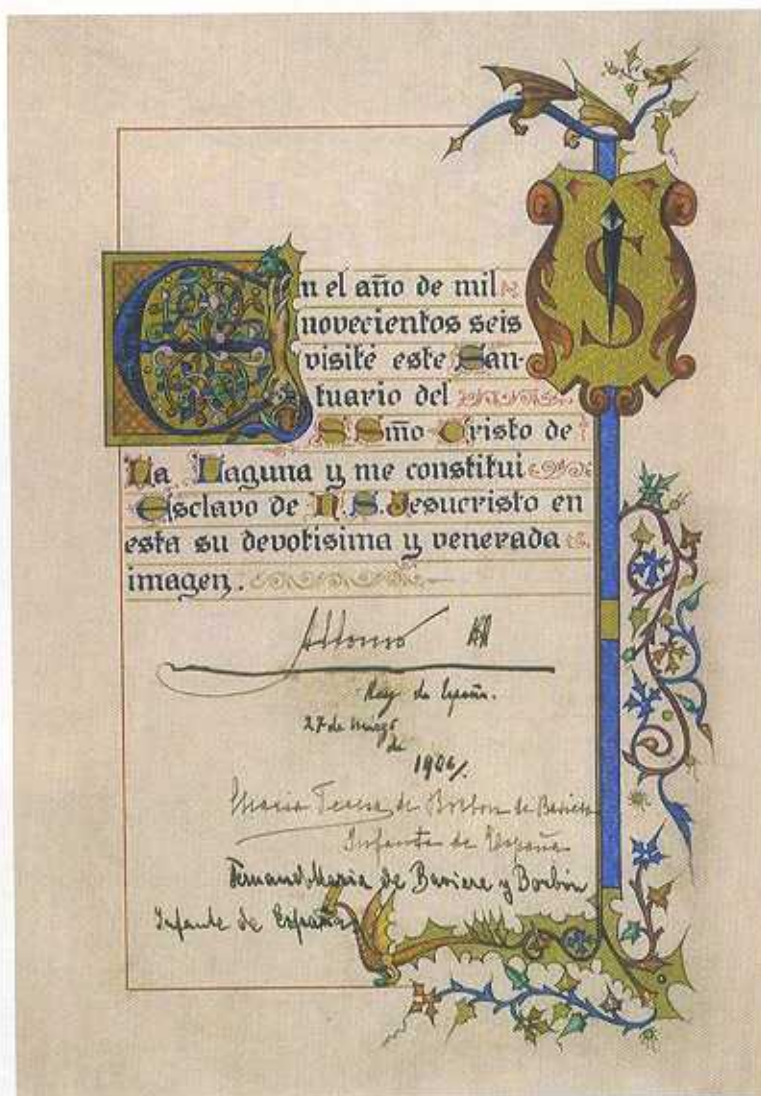 En el año de mil
novecientos seis
visité este San-
tuario del
SSmo Cristo de
La Laguna y me constitui
Esclavo de N. S. Jesucristo en
esta su devotisima y venerada
imagen.
Alfonso XIII
Rey de España.
27 de marzo
de
1906/.
Maria Teresa de Borbon de Baviera
Infanta de España
Fernando Maria de Baviera y Borbón
Infante de España
S